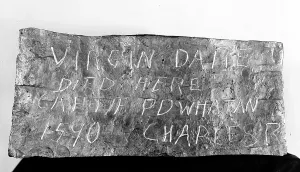 VIRGIN DARE
DIED HERE
CAPTIF POWHATAN
1590 CHARLES R